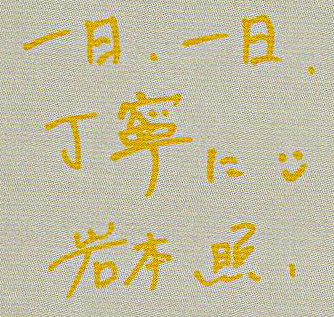 一日、一日、
丁寧に
岩本 照、